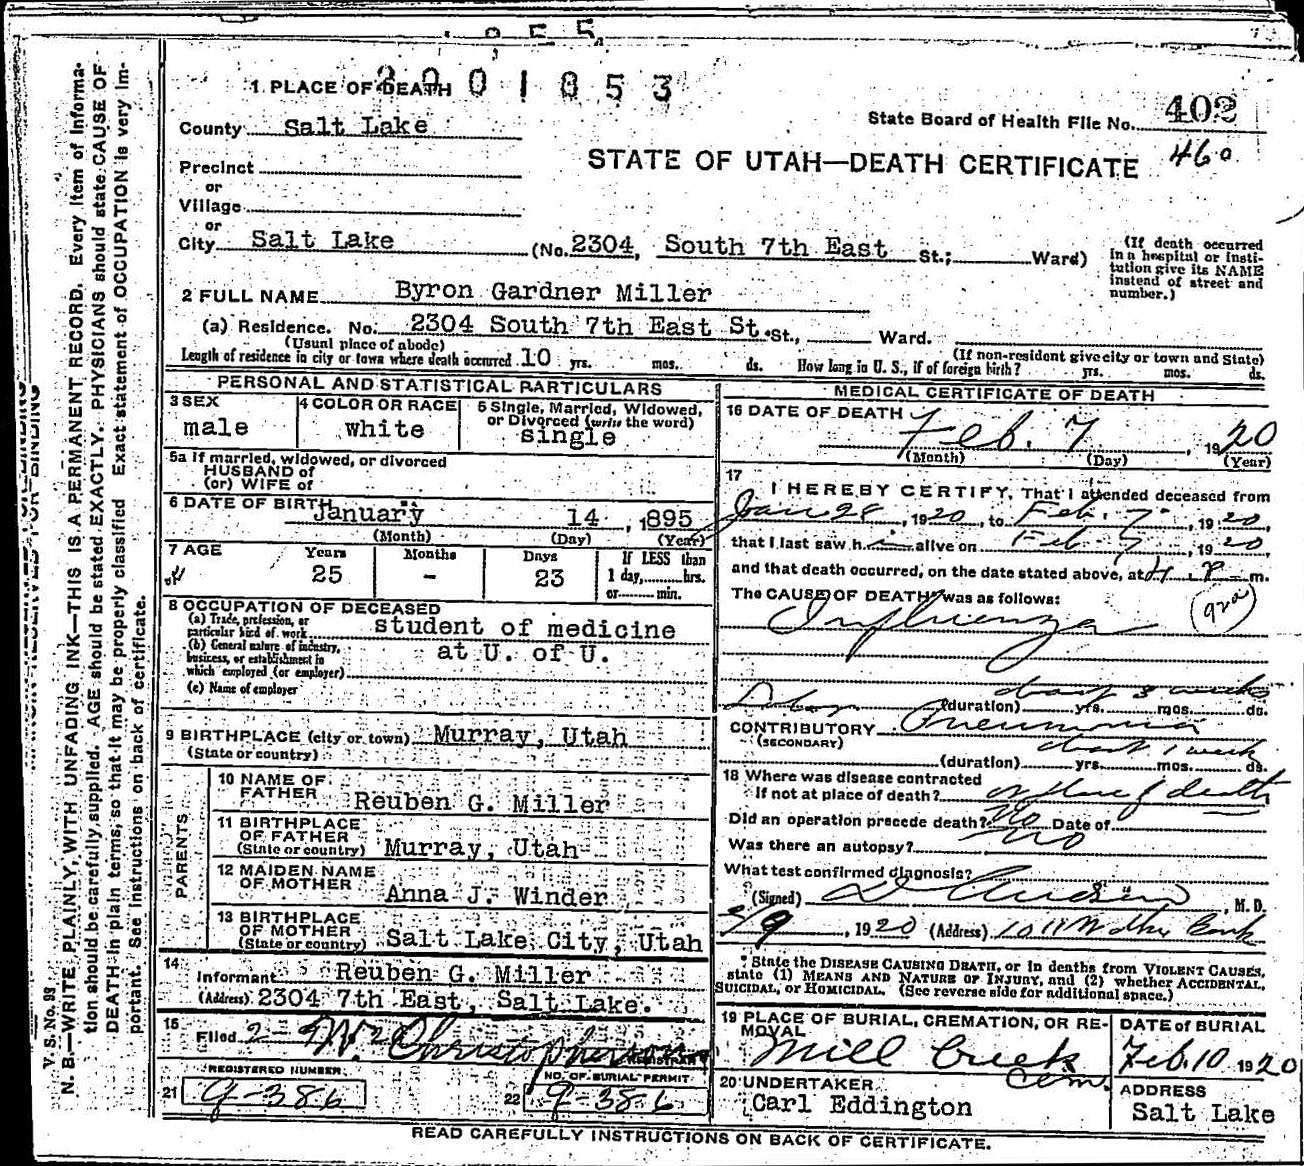 2001853
1 PLACE OF DEATH
County Salt Lake
State Board of Health File No. 402
460
STATE OF UTAH—DEATH CERTIFICATE
Precinct
or
Village
or
City Salt Lake (No. 2304, South 7th East St.; Ward)
(If death occurred in a hospital or institution give its NAME instead of street and number.)
2 FULL NAME Byron Gardner Miller
(a) Residence. No. 2304 South 7th East St. St., Ward.
(Usual place of abode)
(If non-resident give city or town and State)
Length of residence in city or town where death occurred 10 yrs. mos. ds. How long in U. S., if of foreign birth? yrs. mos. ds.
PERSONAL AND STATISTICAL PARTICULARS
3 SEX
male
4 COLOR OR RACE
white
5 Single, Married, Widowed, or Divorced (write the word)
single
5a If married, widowed, or divorced
HUSBAND of
(or) WIFE of
6 DATE OF BIRTH January 14, 1895
(Month) (Day) (Year)
7 AGE Years Months Days If LESS than
25 - 23 1 day, hrs.
or min.
8 OCCUPATION OF DECEASED
(a) Trade, profession, or particular kind of work student of medicine
(b) General nature of industry, business, or establishment in which employed (or employer) at U. of U.
(c) Name of employer
9 BIRTHPLACE (city or town) Murray, Utah
(State or country)
PARENTS
10 NAME OF FATHER Reuben G. Miller
11 BIRTHPLACE OF FATHER
(State or country) Murray, Utah
12 MAIDEN NAME OF MOTHER Anna J. Winder
13 BIRTHPLACE OF MOTHER
(State or country) Salt Lake City, Utah
14
Informant Reuben G. Miller
(Address) 2304 7th East, Salt Lake.
15
Filed 2- W. Christopherson
REGISTRAR
REGISTERED NUMBER.
21 9-386
NO. OF BURIAL PERMIT
22 9-386
MEDICAL CERTIFICATE OF DEATH
16 DATE OF DEATH
Feb. 7, 1920
(Month) (Day) (Year)
17
I HEREBY CERTIFY, That I attended deceased from
Jan 28, 1920, to Feb. 7, 1920,
that I last saw him alive on Feb 7, 1920
and that death occurred, on the date stated above, at 4 P m.
The CAUSE OF DEATH* was as follows:
Influenza
about 3 weeks
(duration) yrs. mos. ds.
CONTRIBUTORY Pneumonia
(SECONDARY)
about 1 week
(duration) yrs. mos. ds.
18 Where was disease contracted
If not at place of death? at place of death
Did an operation precede death? No Date of
Was there an autopsy? No
What test confirmed diagnosis?
(Signed) M. D.
2/9, 1920 (Address) 1011 Walker Bank
* State the DISEASE CAUSING DEATH, or in deaths from VIOLENT CAUSES,
state (1) MEANS AND NATURE OF INJURY, and (2) whether ACCIDENTAL,
SUICIDAL, or HOMICIDAL. (See reverse side for additional space.)
19 PLACE OF BURIAL, CREMATION, OR REMOVAL
Mill Creek Cem.
DATE of BURIAL
Feb. 10 1920
20 UNDERTAKER
Carl Eddington
ADDRESS
Salt Lake
READ CAREFULLY INSTRUCTIONS ON BACK OF CERTIFICATE.
V. S. No. 93
N. B.—WRITE PLAINLY, WITH UNFADING INK—THIS IS A PERMANENT RECORD. Every item of informa-
tion should be carefully supplied. AGE should be stated EXACTLY. PHYSICIANS should state CAUSE OF
DEATH in plain terms, so that it may be properly classified. Exact statement of OCCUPATION is very im-
portant. See instructions on back of certificate.